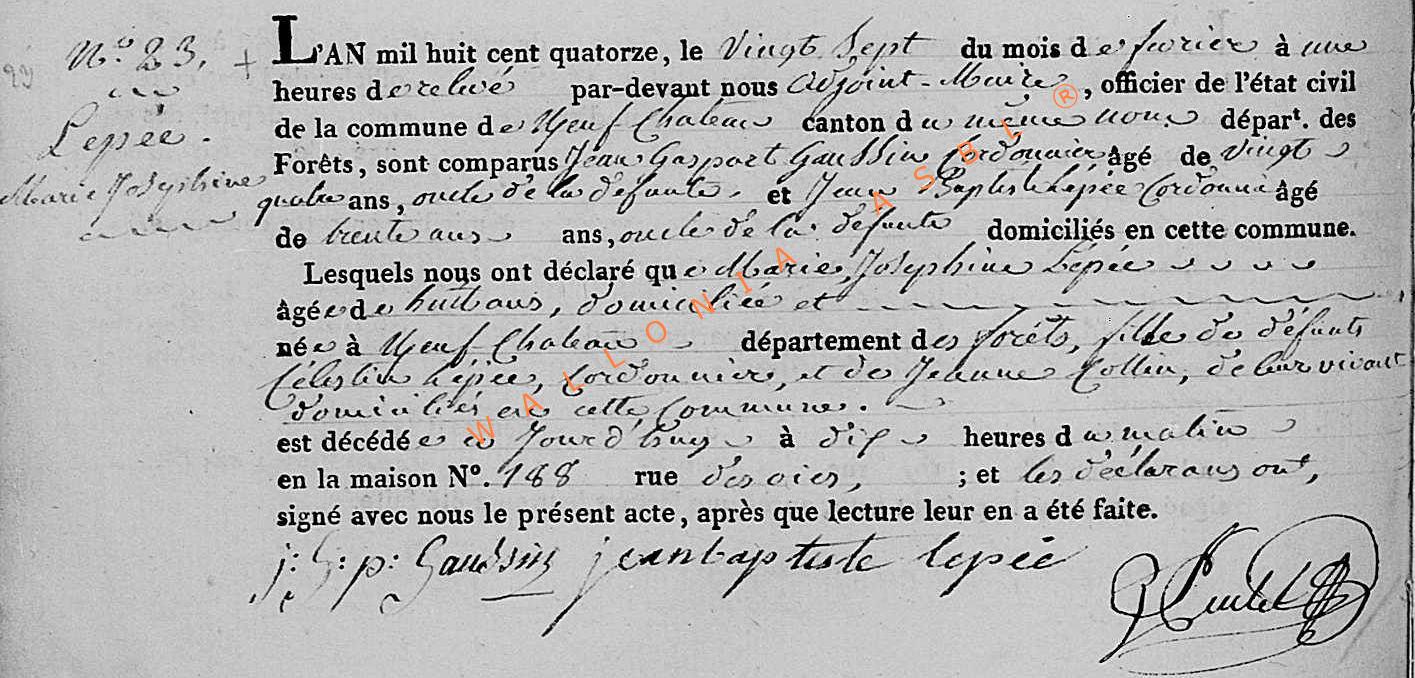 N.º 23. +
Lepée.
Marie Josephine
L'AN mil huit cent quatorze, le Vingt Sept du mois de fevrier à une
heures de relevé par-devant nous adjoint-Maire, officier de l'état civil
de la commune de Neuf Chateau canton du même nom, départ. des
Forêts, sont comparus Jean Gaspart Gaussin Cordonnier âgé de vingt
quatre ans, oncle de la défunte, et Jean Baptiste Lepée Cordonnié âgé
de trente ans ans, oncle de la défunte domiciliés en cette commune.
Lesquels nous ont déclaré que Marie Josephine Lepée
âgée de huit ans, domiciliée et
née à Neuf Chateau département des forêts, fille de défunts
Célestin Lépée, Cordonnier, et de Jeanne Collin, de leur vivant
domiciliés en cette Commune.
est décédée à Jourd'huy à dix heures du matin
en la maison Nº. 188 rue des oies, ; et les déclarans ont,
signé avec nous le présent acte, après que lecture leur en a été faite.
j: G: p: Gaussin jean baptiste lepée
WALLONIA ASBL ®